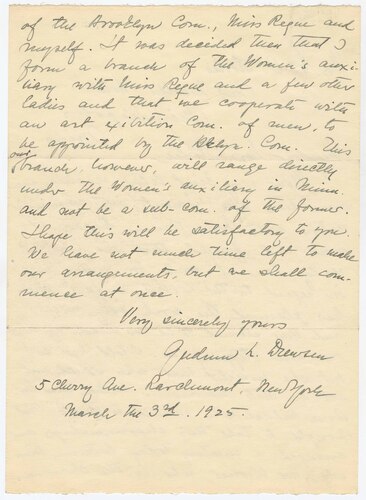 of the Brooklyn Com., Miss Regue and
myself. It was decided then that I
form a branch of the Women's auxi-
liary with Miss Regue and a few other
ladies and that we cooperate with
an art exibition Com. of men, to
be appointed by the Bklyn. Com. This
our
branch, however, will range directly
under the Women's auxiliary in Minn.
and not be a sub-com. of the former.
I hope this will be satisfactory to you.
We have not much time left to make
our arrangements, but we shall com-
mence at once.
Very sincerely yours
Gudrun L. Drewsen
5 Cherry Ave. Larchmont, New York
March the 3rd. 1925.